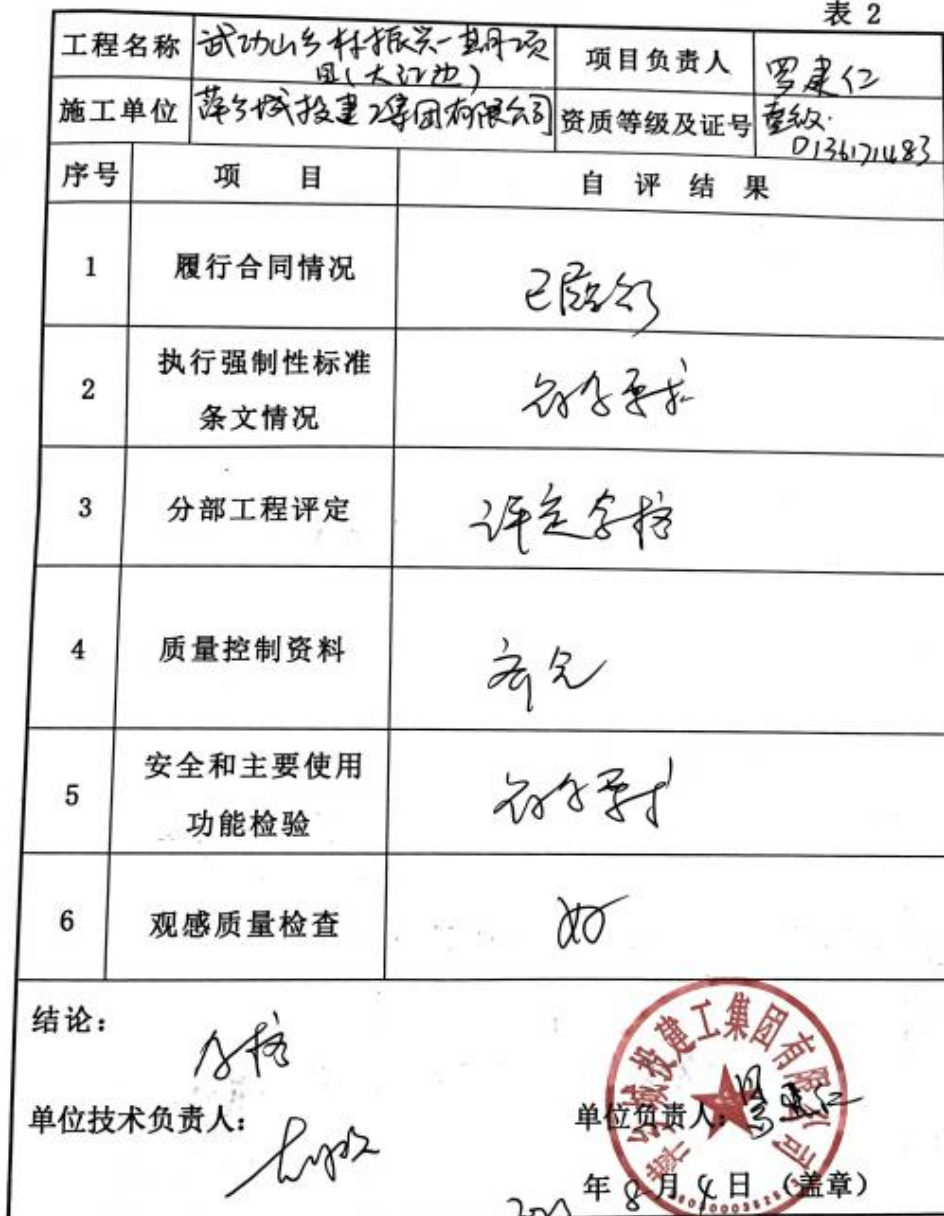 表 2
工程名称 武功山乡村振兴一期项目(大江边) 项目负责人 罗建仁
施工单位 萍乡城投建工集团有限公司 资质等级及证号 壹级. D136171483
序号 项 目 自 评 结 果
1 履行合同情况 已履行
2 执行强制性标准
条文情况 符合要求
3 分部工程评定 评定合格
4 质量控制资料 齐全
5 安全和主要使用
功能检验 符合要求
6 观感质量检查 好
结论:
合格
单位技术负责人:
单位负责人: 罗建仁
萍乡城投建工集团有限公司
年 8 月 日 (盖章)